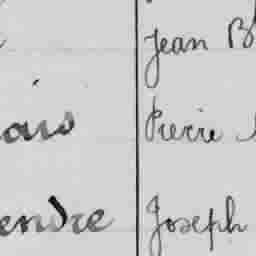 Jean B
ais Pierre
endre Joseph